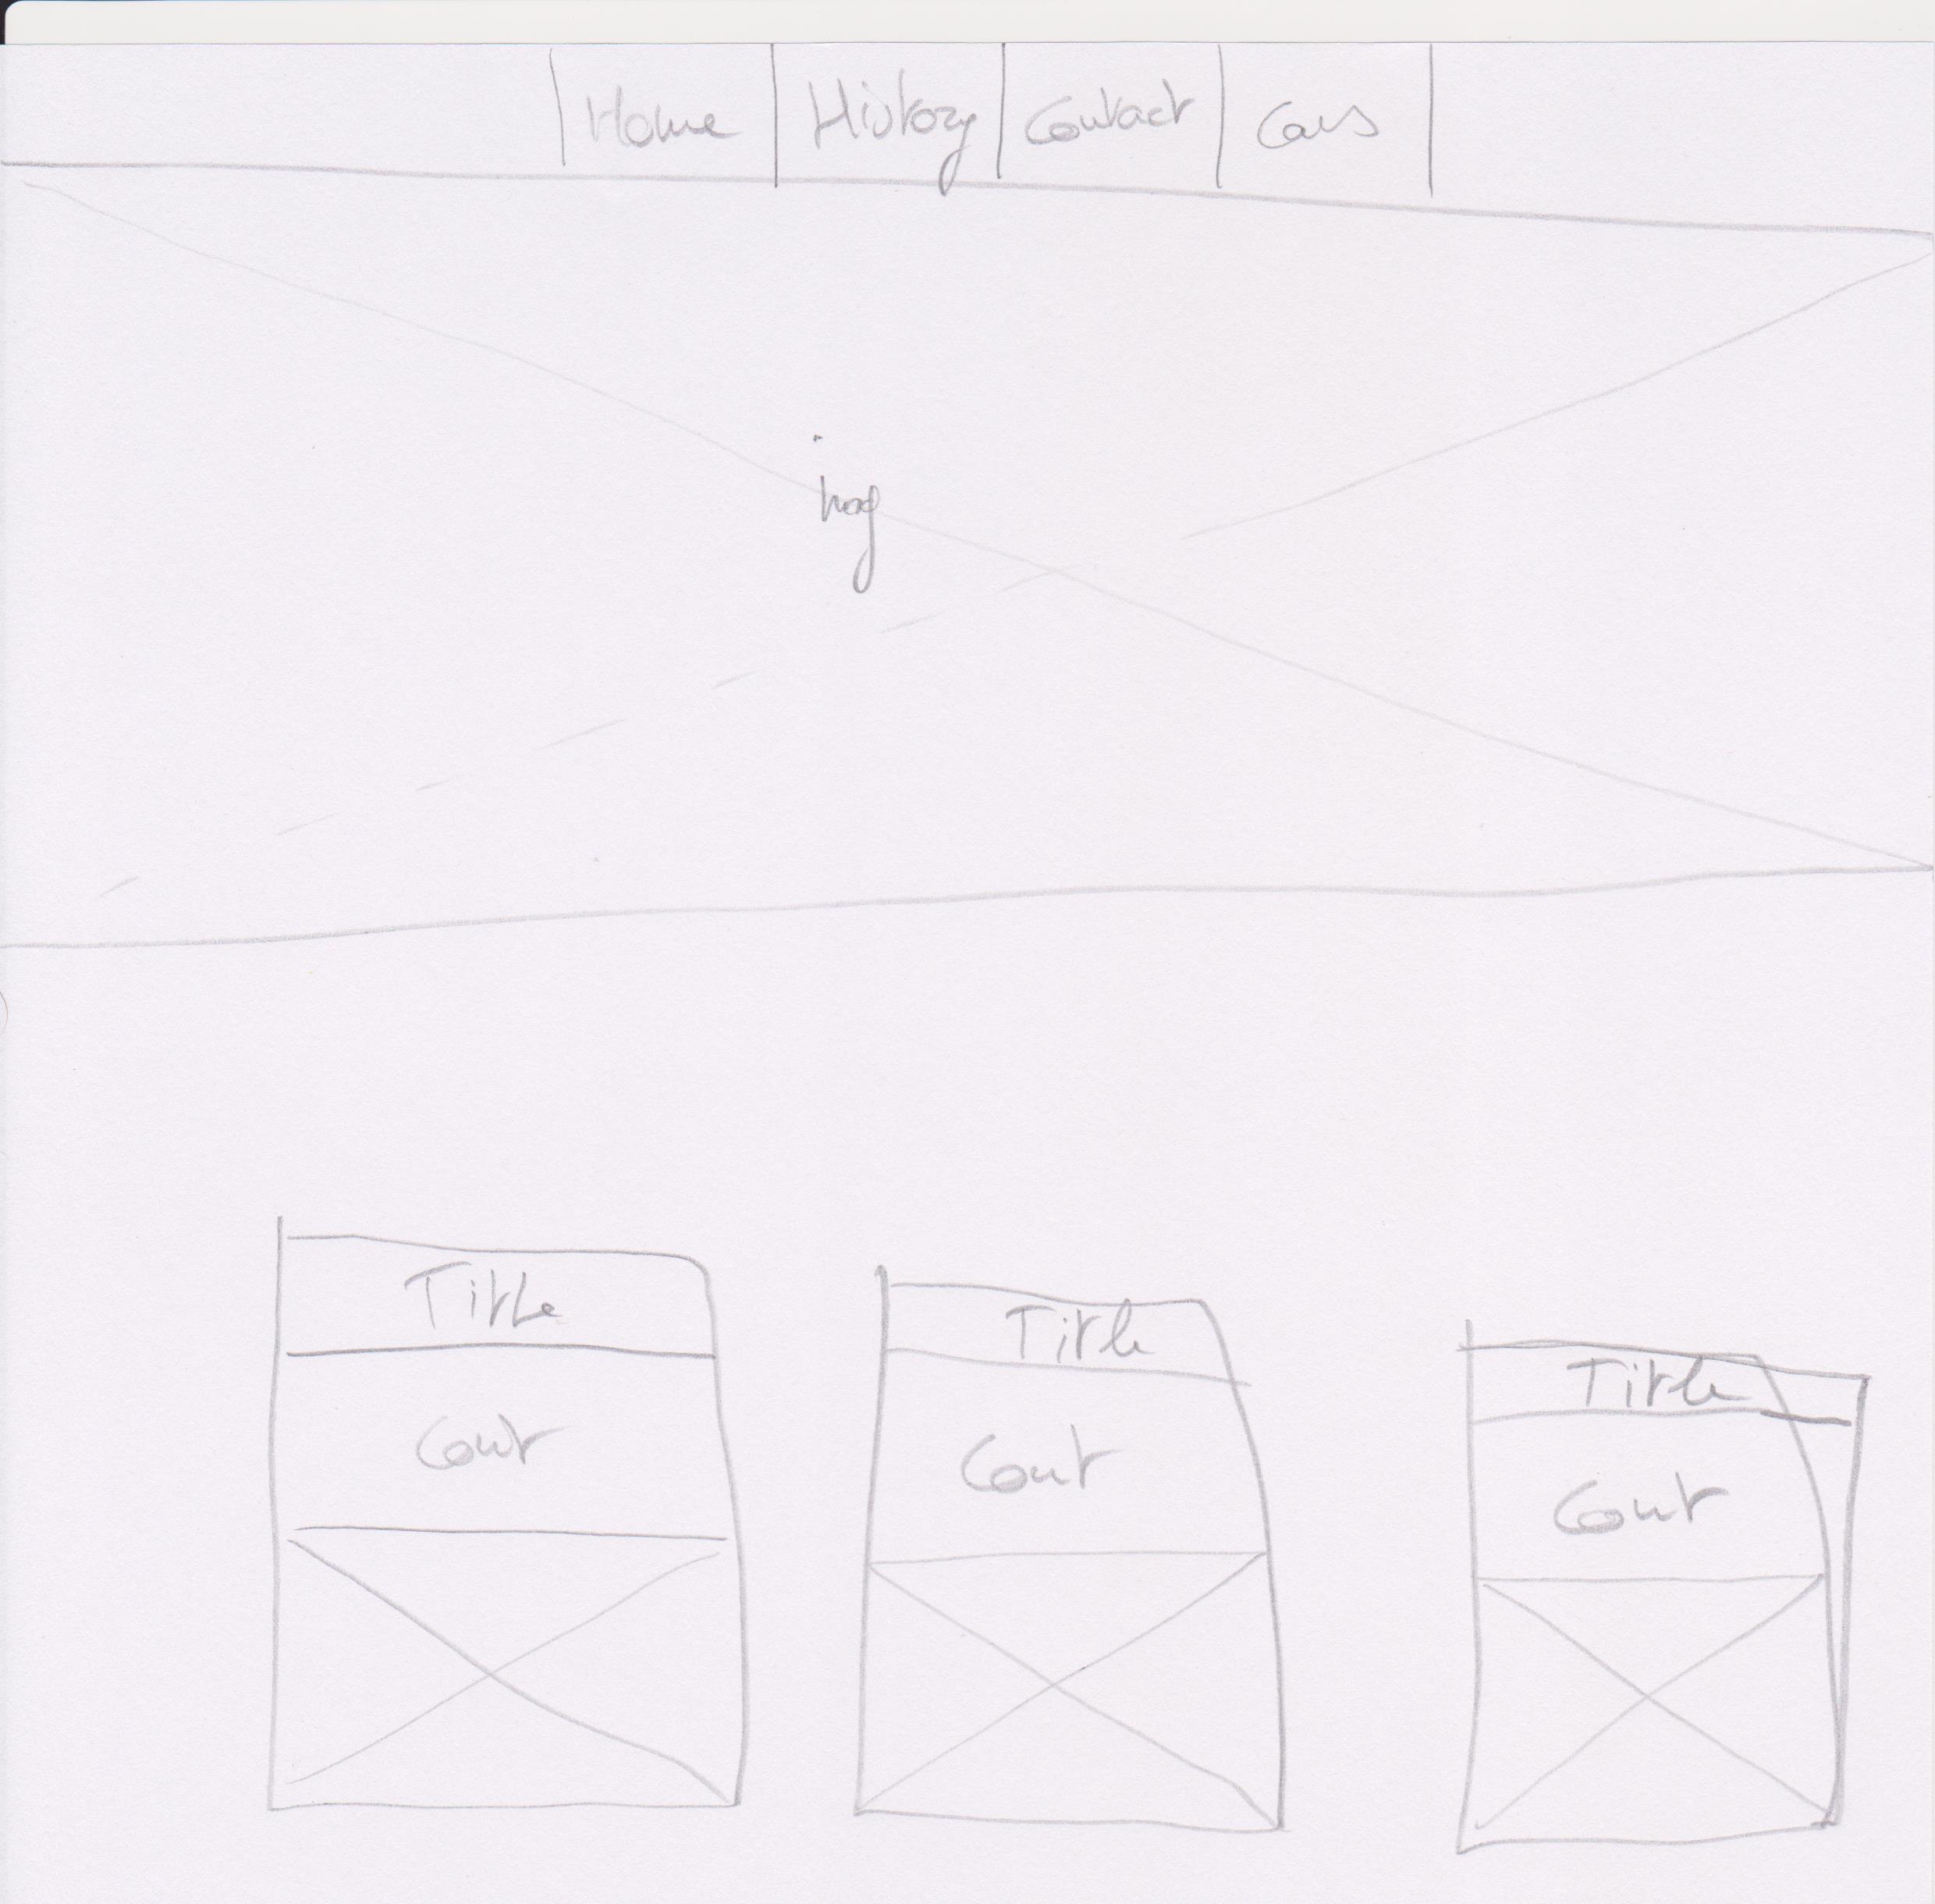 Home History Contact Cars
img
Title Title Title
Cont Cont Cont